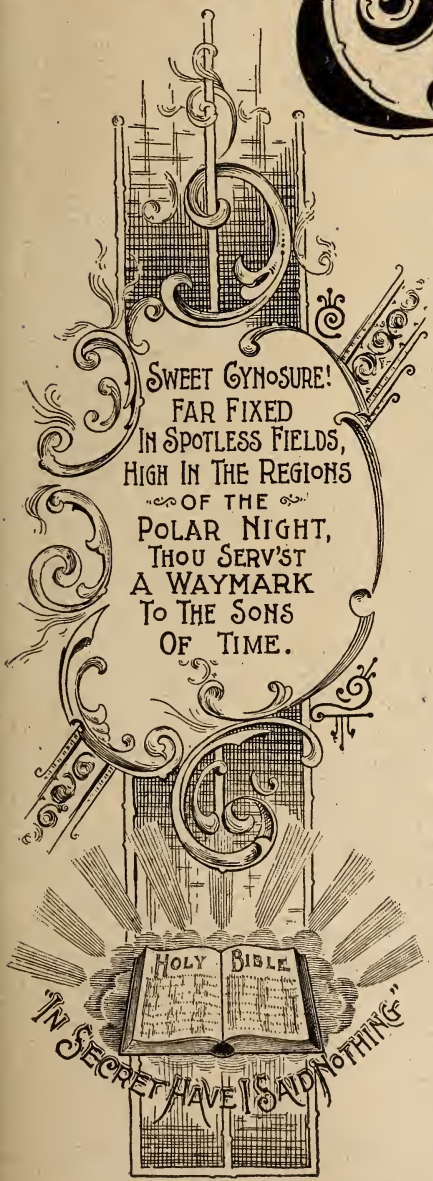 SWEET CYNOSURE!
FAR FIXED
IN SPOTLESS FIELDS,
HIGH IN THE REGIONS
OF THE
POLAR NIGHT,
THOU SERV'ST
A WAYMARK
TO THE SONS
OF TIME.
HOLY BIBLE
"IN SECRET HAVE I SAID NOTHING"